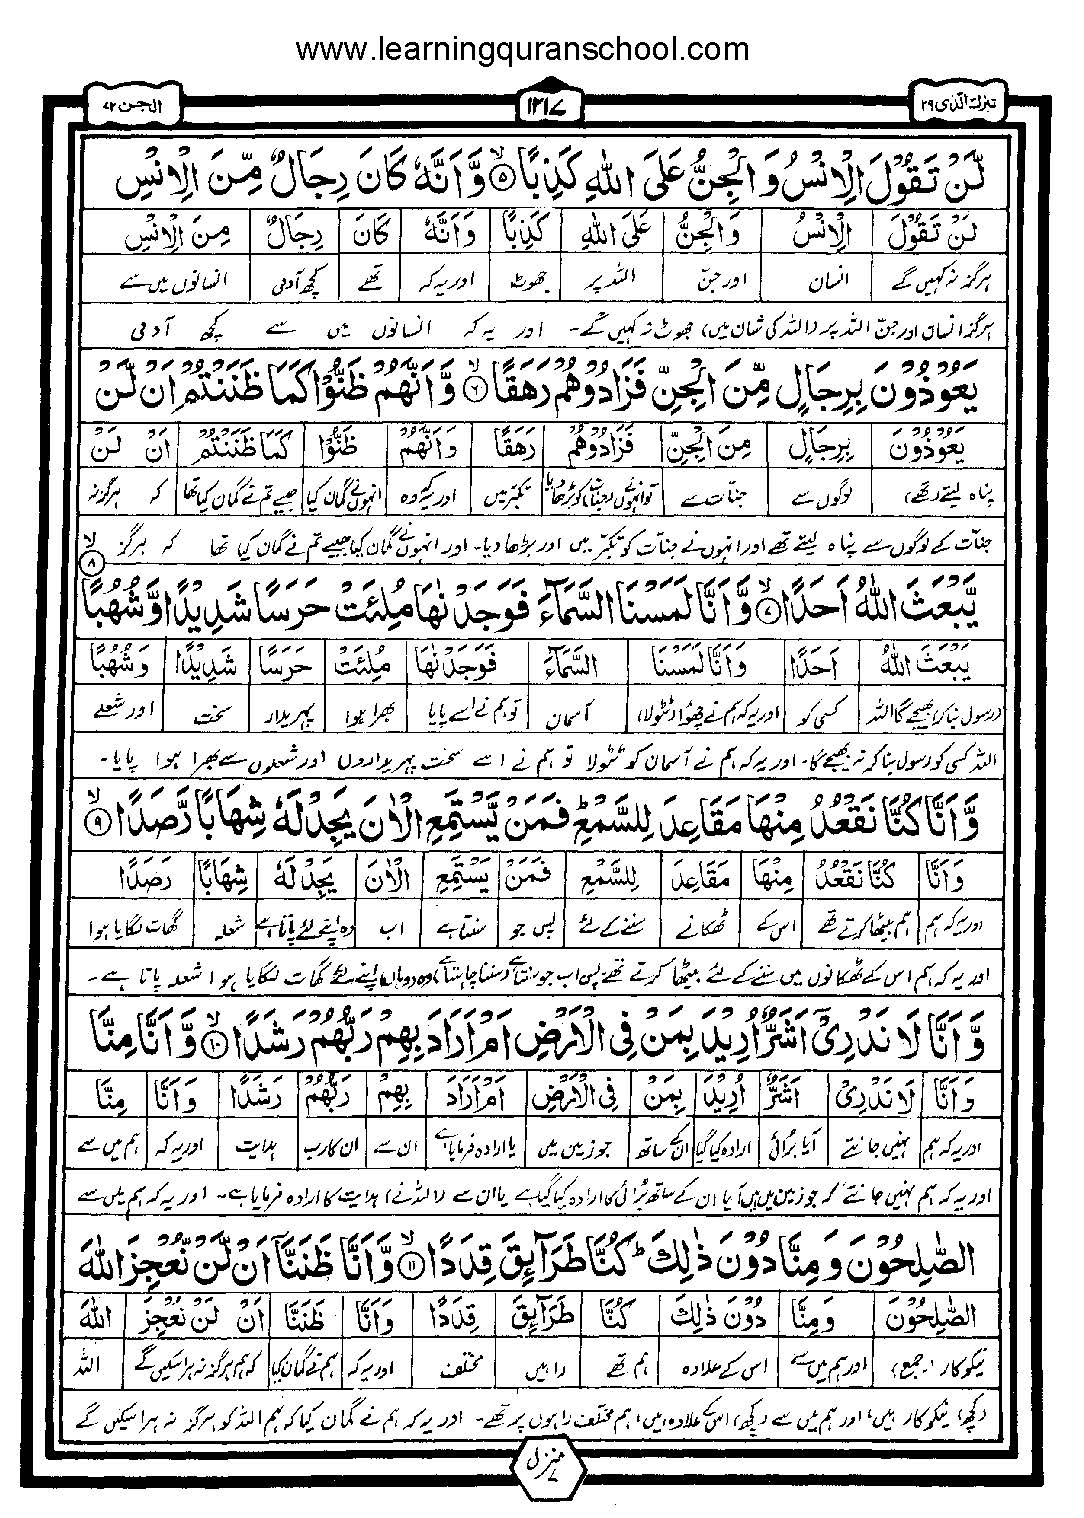 www.learningquranschool.com
تبٰرك الّذى ٢٩ ١٢١٧ الجن ٧٢
لَّنْ تَقُوْلَ الْاِنْسُ وَالْجِنُّ عَلَى اللّٰهِ كَذِبًا ۙ﴿٥﴾ وَّاَنَّهٗ كَانَ رِجَالٌ مِّنَ الْاِنْسِ
لَنْ تَقُوْلَ الْاِنْسُ وَالْجِنُّ عَلَى اللّٰهِ كَذِبًا وَاَنَّهٗ كَانَ رِجَالٌ مِنَ الْاِنْسِ
ہرگز نہ کہیں گے انسان اور جنّ اللہ پر جھوٹ اور یہ کہ تھے کچھ آدمی انسانوں میں سے
ہرگز انسان اور جنّ اللہ پر (اللہ کی شان میں) جھوٹ نہ کہیں گے۔ اور یہ کہ انسانوں میں سے کچھ آدمی
يَعُوْذُوْنَ بِرِجَالٍ مِّنَ الْجِنِّ فَزَادُوْهُمْ رَهَقًا ۙ﴿٦﴾ وَّاَنَّهُمْ ظَنُّوْا كَمَا ظَنَنْتُمْ اَنْ لَّنْ
يَعُوْذُوْنَ بِرِجَالٍ مِنَ الْجِنِّ فَزَادُوْهُمْ رَهَقًا وَاَنَّهُمْ ظَنُّوْا كَمَا ظَنَنْتُمْ اَنْ لَنْ
پناہ لیتے (تھے) لوگوں سے جنّات سے تو انہوں نے (جنات کو) بڑھا دیا تکبّر میں اور یہ کہ وہ انہوں نے گمان کیا جیسے تم نے گمان کیا تھا کہ ہرگز نہ
جنّات کے لوگوں سے پناہ لیتے تھے اور انہوں نے جنات کو تکبّر میں اور بڑھا دیا۔ اور انہوں نے گمان کیا جیسے تم نے گمان کیا تھا کہ ہرگز
يَّبْعَثَ اللّٰهُ اَحَدًا ۙ﴿٧﴾ وَّاَنَّا لَمَسْنَا السَّمَآءَ فَوَجَدْنٰهَا مُلِئَتْ حَرَسًا شَدِيْدًا وَّشُهُبًا ۙ﴿٨﴾
يَبْعَثَ اللّٰهُ اَحَدًا وَاَنَّا لَمَسْنَا السَّمَآءَ فَوَجَدْنٰهَا مُلِئَتْ حَرَسًا شَدِيْدًا وَشُهُبًا
(رسول بنا کر) بھیجے گا اللہ کسی کو اور یہ کہ ہم نے چھوا (ٹٹولا) آسمان تو ہم نے اسے پایا بھرا ہوا پہریدار سخت اور شعلے
اللہ کسی کو رسول بنا کر نہ بھیجے گا۔ اور یہ کہ ہم نے آسمان کو ٹٹولا تو ہم نے اسے سخت پہریداروں اور شعلوں سے بھرا ہوا پایا۔
وَّاَنَّا كُنَّا نَقْعُدُ مِنْهَا مَقَاعِدَ لِلسَّمْعِ ؕ فَمَنْ يَّسْتَمِعِ الْاٰنَ يَجِدْ لَهٗ شِهَابًا رَّصَدًا ۙ﴿٩﴾
وَاَنَّا كُنَّا نَقْعُدُ مِنْهَا مَقَاعِدَ لِلسَّمْعِ فَمَنْ يَسْتَمِعِ الْاٰنَ يَجِدْ لَهٗ شِهَابًا رَصَدًا
اور یہ کہ ہم ہم بیٹھا کرتے تھے اس کے ٹھکانے سننے کے لئے پس جو سنتا ہے اب وہ اپنے لئے پاتا ہے شعلہ گھات لگایا ہوا
اور یہ کہ ہم اس کے ٹھکانوں میں سننے کے لئے بیٹھا کرتے تھے پس اب جو سنتا ہے (سننا چاہتا ہے) وہ (وہاں) اپنے لئے گھات لگایا ہوا شعلہ پاتا ہے۔
وَّاَنَّا لَا نَدْرِىْٓ اَشَرٌّ اُرِيْدَ بِمَنْ فِى الْاَرْضِ اَمْ اَرَادَ بِهِمْ رَبُّهُمْ رَشَدًا ۙ﴿١٠﴾ وَّاَنَّا مِنَّا
وَاَنَّا لَا نَدْرِىْٓ اَشَرٌّ اُرِيْدَ بِمَنْ فِى الْاَرْضِ اَمْ اَرَادَ بِهِمْ رَبُّهُمْ رَشَدًا وَاَنَّا مِنَّا
اور یہ کہ ہم نہیں جانتے آیا برائی ارادہ کیا گیا ان کے ساتھ جو زمین میں یا ارادہ فرمایا ہے ان سے ان کا رب ہدایت اور یہ کہ ہم میں سے
اور یہ کہ ہم نہیں جانتے کہ جو زمین میں ہیں آیا ان کے ساتھ برائی کا ارادہ کیا گیا ہے یا ان سے (اللہ نے) ہدایت کا ارادہ فرمایا ہے۔ اور یہ کہ ہم میں سے
الصّٰلِحُوْنَ وَمِنَّا دُوْنَ ذٰلِكَ ؕ كُنَّا طَرَآئِقَ قِدَدًا ۙ﴿١١﴾ وَّاَنَّا ظَنَنَّآ اَنْ لَّنْ نُّعْجِزَ اللّٰهَ
الصّٰلِحُوْنَ وَمِنَّا دُوْنَ ذٰلِكَ كُنَّا طَرَآئِقَ قِدَدًا وَاَنَّا ظَنَنَّا اَنْ لَنْ نُعْجِزَ اللّٰهَ
نیکو کار (جمع) اور ہم میں سے اس کے علاوہ ہم تھے راہیں مختلف اور یہ کہ ہم نے گمان کیا کہ ہم ہرگز نہ ہرا سکیں گے اللہ
(کچھ) نیکو کار ہیں اور ہم میں سے (کچھ) اس کے علاوہ ہیں، ہم مختلف راہوں پر تھے۔ اور یہ کہ ہم نے گمان کیا کہ ہم اللہ کو ہرگز نہ ہرا سکیں گے
منزل ٧